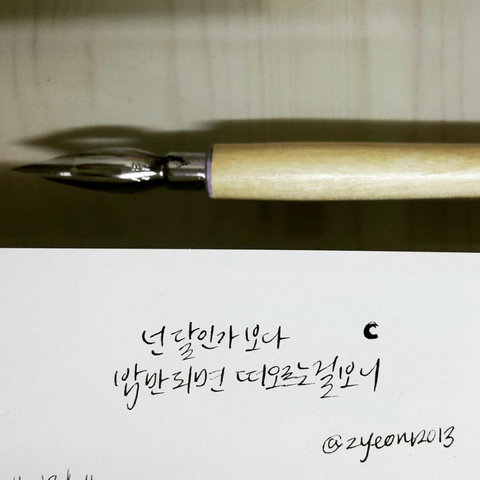 넌 달인가 보다
밤만 되면 떠오르는 걸 보니
@zyeon2013